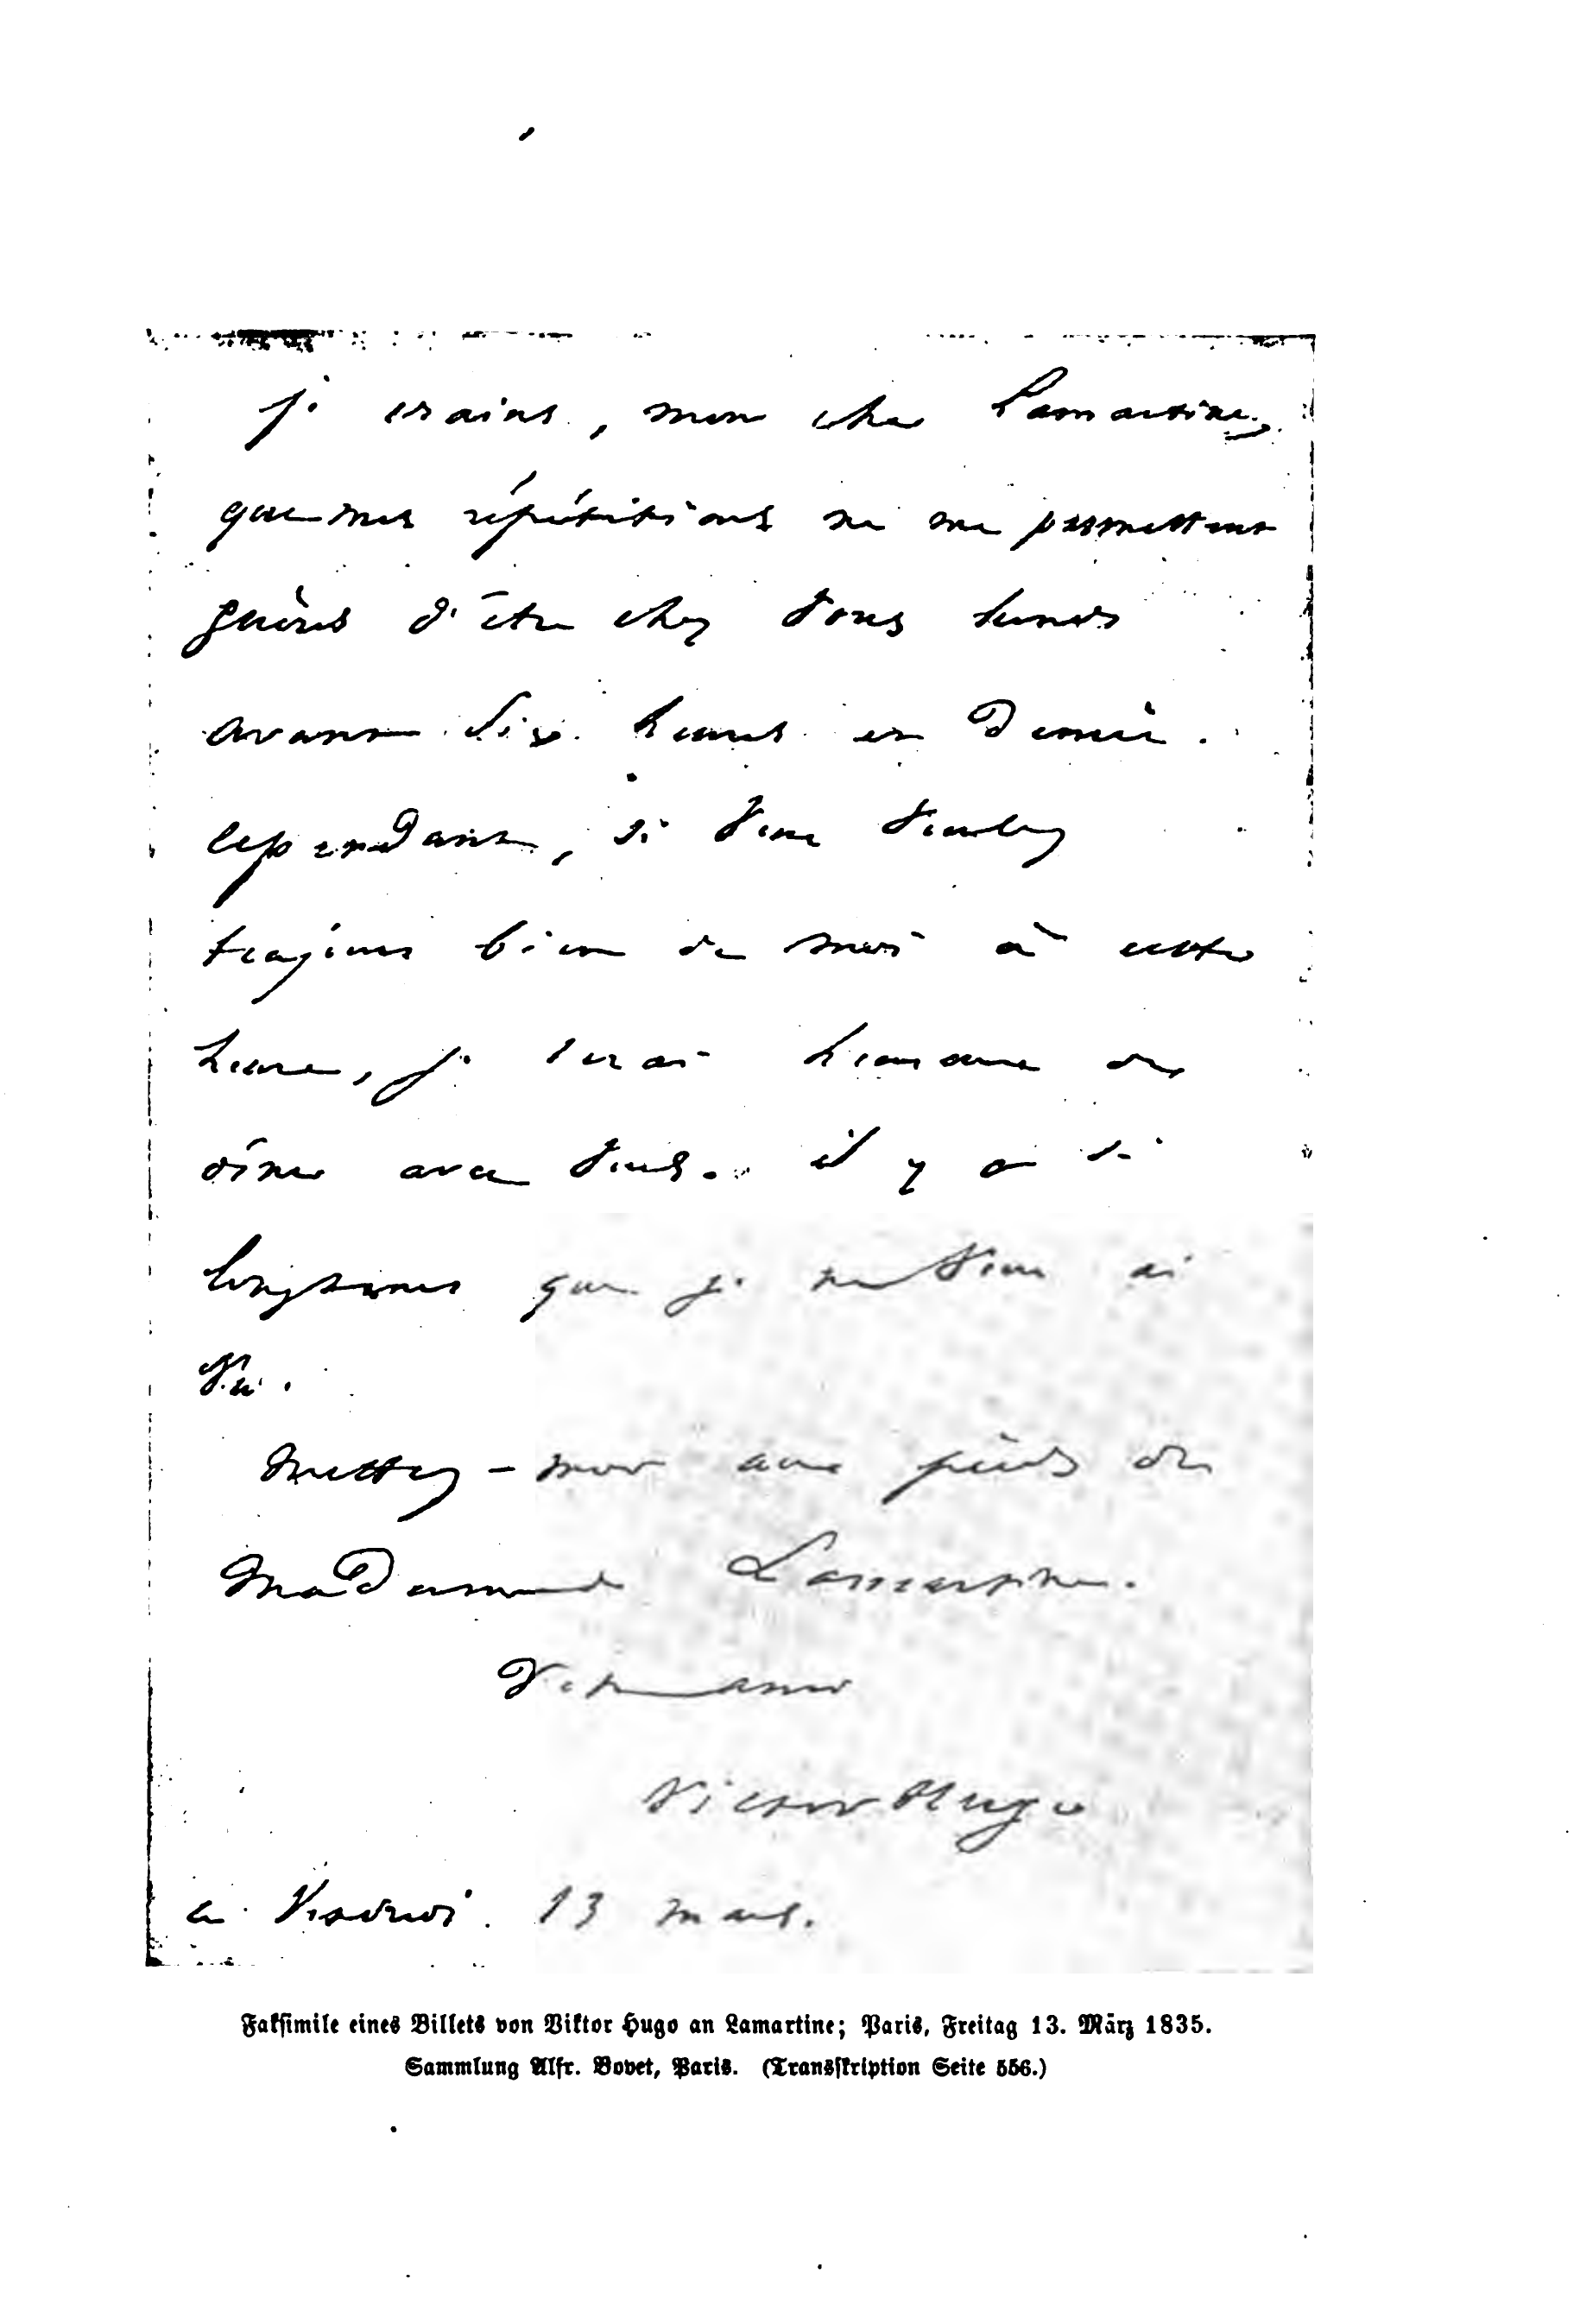 je crains, mon cher Lamartine,
que mes répétitions ne me permettent
guères d'être chez vous lundi
avant six heures et demie.
cependant, si vous voulez
toujours bien de moi à cette
heure, je serai heureux de
dîner avec vous. il y a si
longtemps que je ne vous ai
vu.
Mettez-moi aux pieds de
Madame de Lamartine.
Votre ami
Victor Hugo
ce Vendredi. 13 mars.
Faksimile eines Billets von Viktor Hugo an Lamartine; Paris, Freitag 13. März 1835.
Sammlung Alfr. Bovet, Paris. (Transskription Seite 556.)